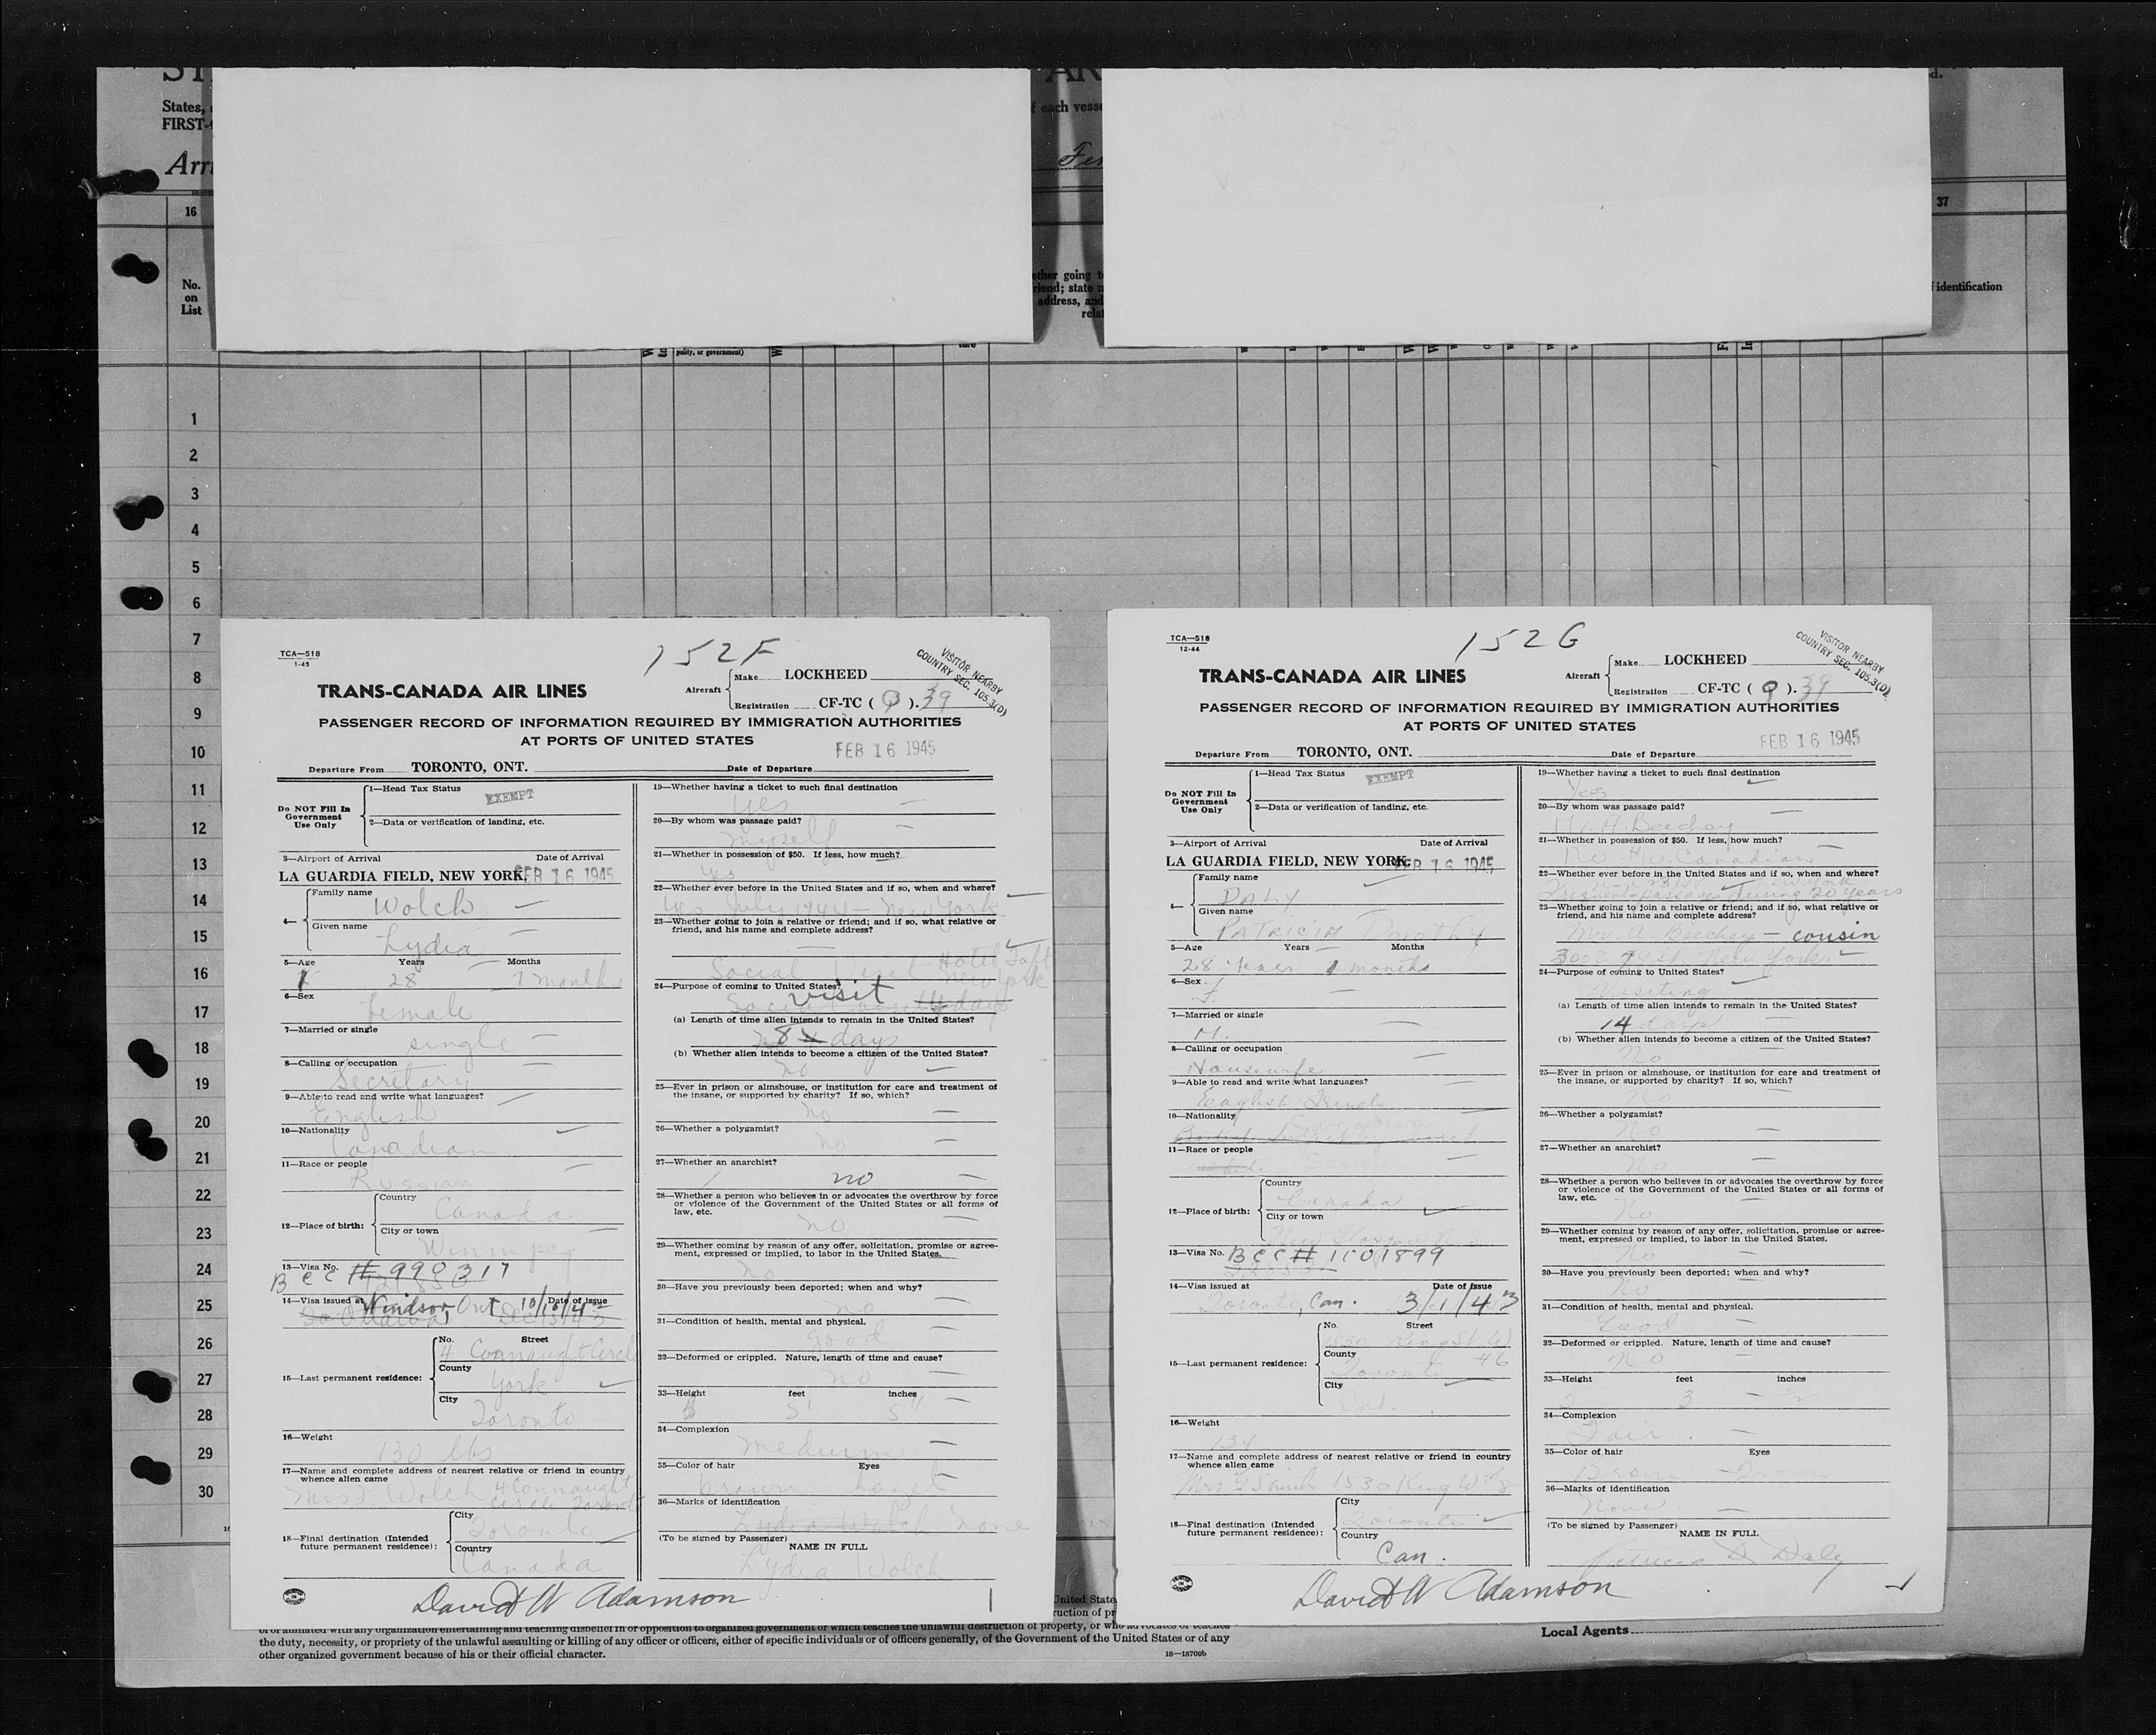 States,
FIRST-
Arri
16
No.
on
List
each vesse
Fer
37
identification
pality, or government)
1
2
3
4
5
6
7
8
9
10
11
12
13
14
15
16
17
18
19
20
21
22
23
24
25
26
27
28
29
30
TCA—518
1-45
152F
VISITOR NEARBY
COUNTRY SEC. 105.3(D)
TRANS-CANADA AIR LINES
Aircraft
Make LOCKHEED
Registration CF-TC ( Q ). 39
PASSENGER RECORD OF INFORMATION REQUIRED BY IMMIGRATION AUTHORITIES
AT PORTS OF UNITED STATES
FEB 16 1945
Departure From TORONTO, ONT. Date of Departure
Do NOT Fill In
Government
Use Only
1—Head Tax Status EXEMPT
2—Data or verification of landing, etc.
3—Airport of Arrival Date of Arrival
LA GUARDIA FIELD, NEW YORK, FEB 16 1945
4— Family name
Wolch
Given name
Lydia
5—Age Years Months
28 7 months
6—Sex
female
7—Married or single
single
8—Calling or occupation
Secretary
9—Able to read and write what languages?
English
10—Nationality
Canadian
11—Race or people
Russian
12—Place of birth:
Country
Canada
City or town
Winnipeg
13—Visa No.
BCC # 990317
14—Visa issued at Date of issue
Windsor, Ont 10/10/42
15—Last permanent residence:
No. Street
4 Connaught Circle
County
York
City
Toronto
16—Weight
130 lbs
17—Name and complete address of nearest relative or friend in country
whence alien came
Wolch 4 Connaught
Circle Toronto
18—Final destination (Intended
future permanent residence):
City
Toronto
Country
Canada
19—Whether having a ticket to such final destination
yes
20—By whom was passage paid?
myself
21—Whether in possession of $50. If less, how much?
yes
22—Whether ever before in the United States and if so, when and where?
yes July 1944 – New York
23—Whether going to join a relative or friend; and if so, what relative or
friend, and his name and complete address?
Social Visit Hotel Taft
New York
24—Purpose of coming to United States?
visit
(a) Length of time alien intends to remain in the United States?
8 days
(b) Whether alien intends to become a citizen of the United States?
no
25—Ever in prison or almshouse, or institution for care and treatment of
the insane, or supported by charity? If so, which?
no
26—Whether a polygamist?
no
27—Whether an anarchist?
no
28—Whether a person who believes in or advocates the overthrow by force
or violence of the Government of the United States or all forms of
law, etc.
no
29—Whether coming by reason of any offer, solicitation, promise or agree-
ment, expressed or implied, to labor in the United States.
no
30—Have you previously been deported; when and why?
no
31—Condition of health, mental and physical.
good
32—Deformed or crippled. Nature, length of time and cause?
no
33—Height feet inches
5' 5"
34—Complexion
medium
35—Color of hair Eyes
brown hazel
36—Marks of identification
Lydia Wolch none
(To be signed by Passenger)
NAME IN FULL
Lydia Wolch
David W Adamson
TCA—518
12-44
152G
VISITOR NEARBY
COUNTRY SEC. 105.3(D)
TRANS-CANADA AIR LINES
Aircraft
Make LOCKHEED
Registration CF-TC ( Q ). 39
PASSENGER RECORD OF INFORMATION REQUIRED BY IMMIGRATION AUTHORITIES
AT PORTS OF UNITED STATES
FEB 16 1945
Departure From TORONTO, ONT. Date of Departure
Do NOT Fill In
Government
Use Only
1—Head Tax Status EXEMPT
2—Data or verification of landing, etc.
3—Airport of Arrival Date of Arrival
LA GUARDIA FIELD, NEW YORK, FEB 16 1945
4— Family name
DALY
Given name
PATRICIA Dorothy
5—Age Years Months
28 Years 1 months
6—Sex
F.
7—Married or single
M.
8—Calling or occupation
Housewife
9—Able to read and write what languages?
English French
10—Nationality
Canadian
11—Race or people
12—Place of birth:
Country
Canada
City or town
New Glasgow N.S.
13—Visa No.
BCC # 1101899
14—Visa issued at Date of issue
Toronto, Can. 3/1/43
15—Last permanent residence:
No. Street
1530 King St W
County
Toronto
City
Ont.
16—Weight
134
17—Name and complete address of nearest relative or friend in country
whence alien came
Mrs Smith 1530 King W
18—Final destination (Intended
future permanent residence):
City
Toronto
Country
Can.
19—Whether having a ticket to such final destination
Yes
20—By whom was passage paid?
Beechey
21—Whether in possession of $50. If less, how much?
No $10. Canadian
22—Whether ever before in the United States and if so, when and where?
during 20 years
23—Whether going to join a relative or friend; and if so, what relative or
friend, and his name and complete address?
Mr. A. Beechey – cousin
New York
24—Purpose of coming to United States?
Visiting
(a) Length of time alien intends to remain in the United States?
14 days
(b) Whether alien intends to become a citizen of the United States?
No
25—Ever in prison or almshouse, or institution for care and treatment of
the insane, or supported by charity? If so, which?
No
26—Whether a polygamist?
No
27—Whether an anarchist?
No
28—Whether a person who believes in or advocates the overthrow by force
or violence of the Government of the United States or all forms of
law, etc.
No
29—Whether coming by reason of any offer, solicitation, promise or agree-
ment, expressed or implied, to labor in the United States.
No
30—Have you previously been deported; when and why?
No
31—Condition of health, mental and physical.
Good
32—Deformed or crippled. Nature, length of time and cause?
No
33—Height feet inches
34—Complexion
Fair.
35—Color of hair Eyes
Brown Brown
36—Marks of identification
None
(To be signed by Passenger)
NAME IN FULL
Patricia D. Daly
David W Adamson
or of affiliated with any organization entertaining and teaching disbelief in or opposition to organized government or which teaches the unlawful destruction of property, or who advocates or teaches
the duty, necessity, or propriety of the unlawful assaulting or killing of any officer or officers, either of specific individuals or of officers generally, of the Government of the United States or of any
other organized government because of his or their official character.
16—18709b
Local Agents